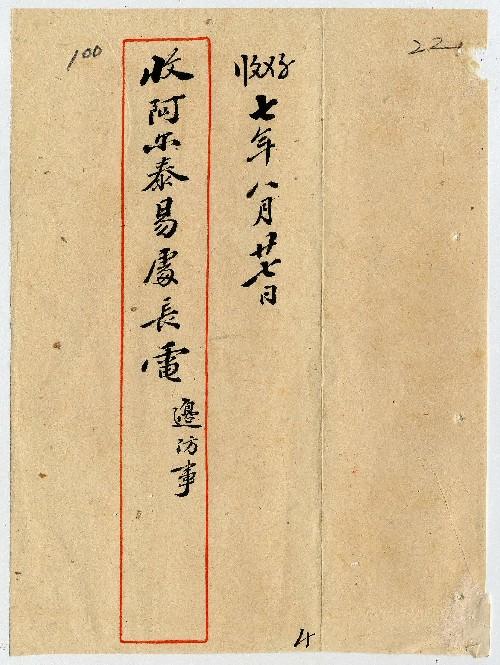 22
收好
七年八月廿七日
收阿尔泰易處長電
邊防事
100